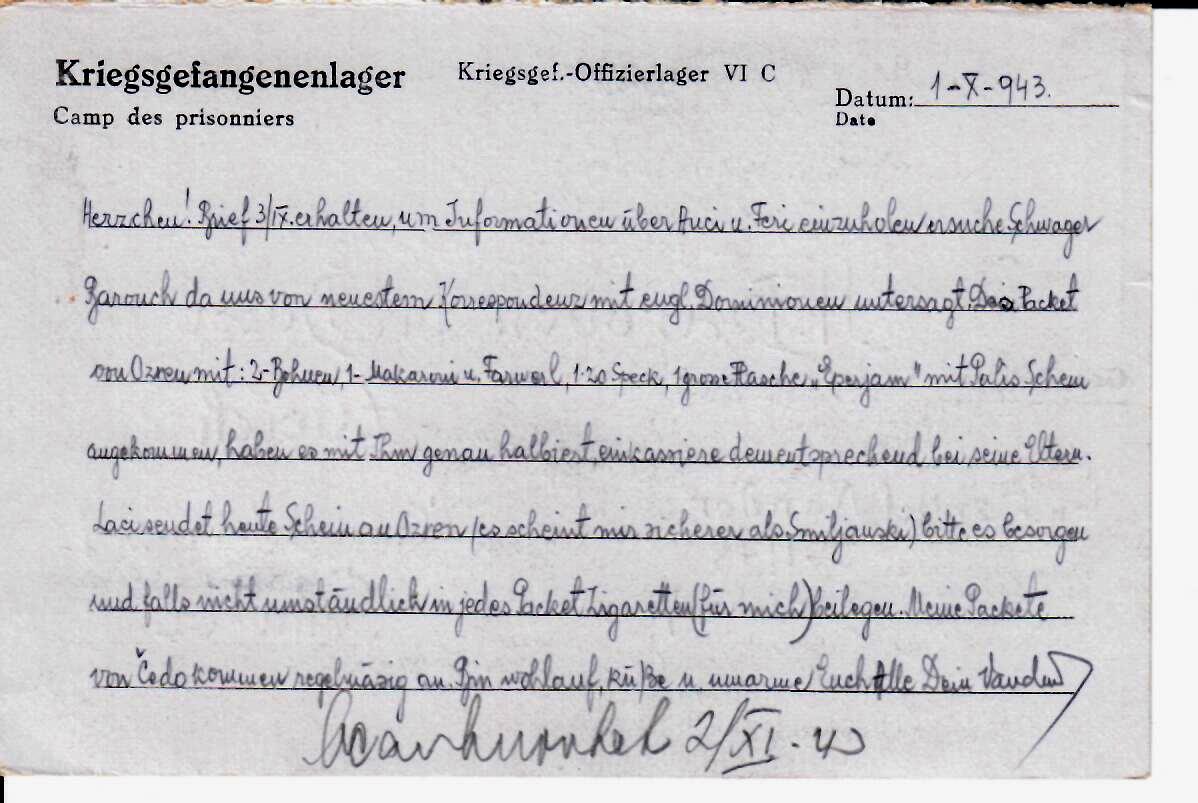 Kriegsgefangenenlager
Kriegsgef.-Offizierlager VI C
Camp des prisonniers
Datum: 1-X-943.
Date
Herzchen! Brief 3/IX. erhalten, um Informationen über Auci u. Feri einzuholen ersuche Schwager
Barouch da uns von neuestem Korrespondenz mit engl. Dominionen untersagt. Das Packet
von Ozren mit: 2-Bohnen, 1- Makaroni u. 1·20 Speck, 1 grosse Flasche „Eperjam" mit Palis Schein
angekommen, haben es mit Ihm genau halbiert, einkassiere dementsprechend bei seine Eltern.
Laci sendet heute Schein an Ozren (es scheint mir sicherer als Smiljanski) bitte es besorgen
und falls nicht umständlich in jedes Packet Zigaretten (für mich) beilegen. Meine Packete
von Čedo kommen regelmäzig an. Bin wohlauf, küße u. umarme Euch Alle Dein
2/XI - 43